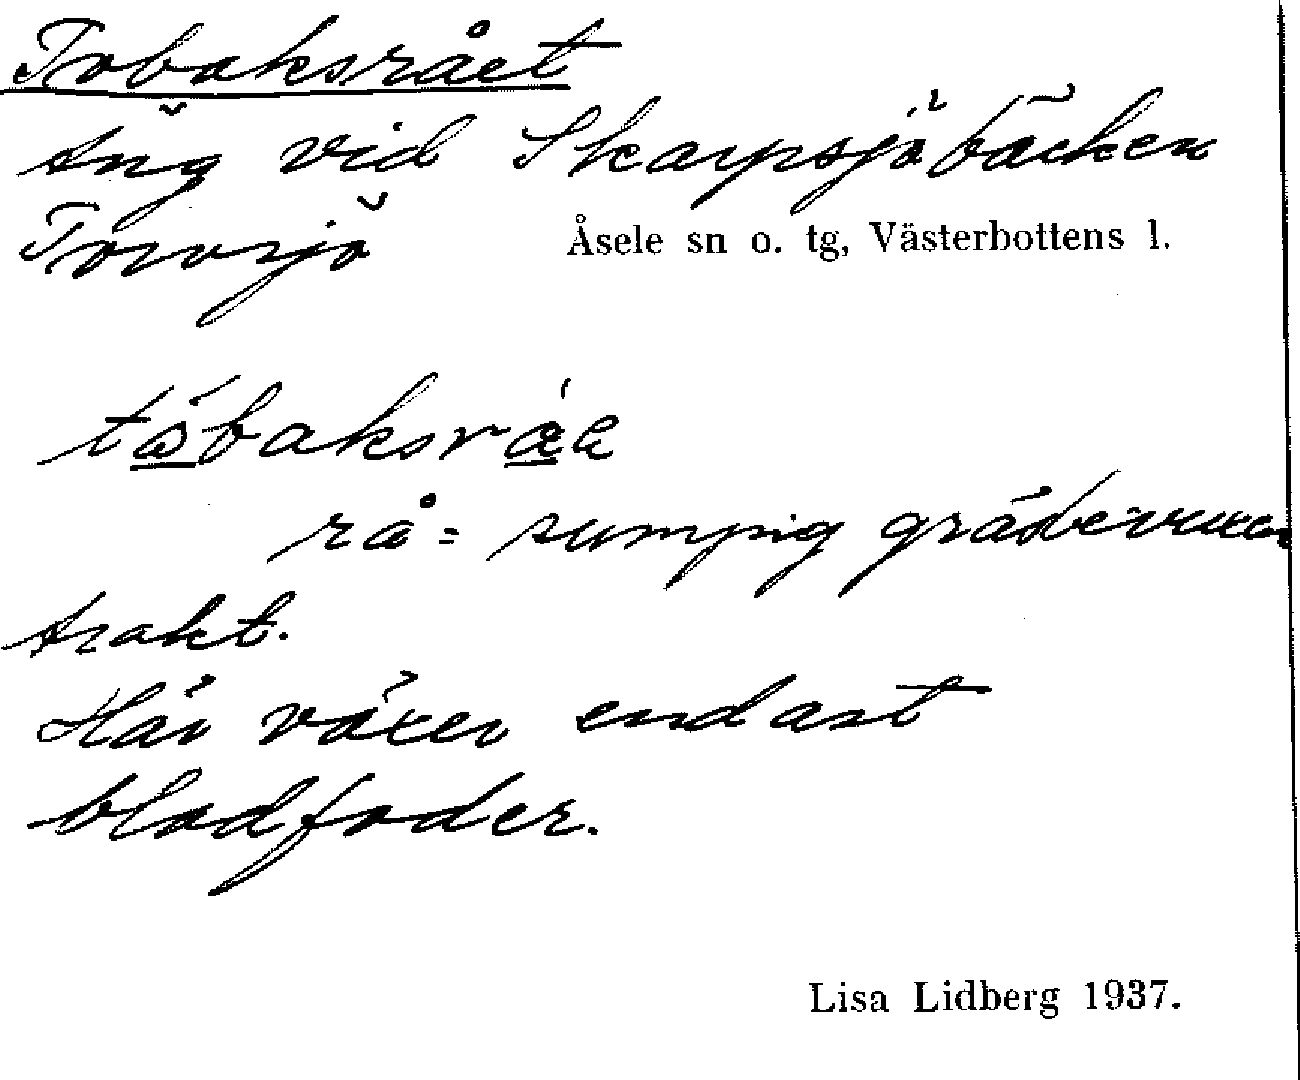 Tobaksrået
Äng vid Skarpsjöbäcken
Torvsjö Åsele sn o. tg, Västerbottens l.
rå = sumpig gräsbevuxen
trakt.
Här växer endast
blodfoder.
Lisa Lidberg 1937.